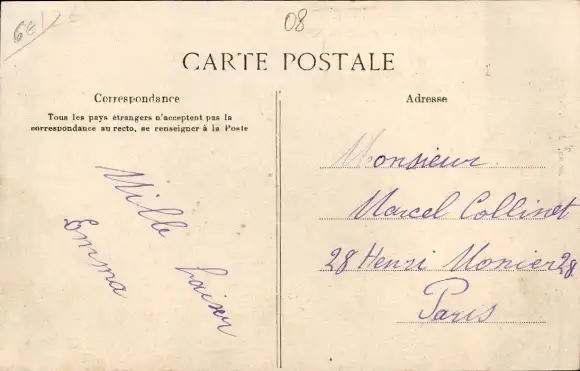 08
CARTE POSTALE
Correspondance
Tous les pays étrangers n'acceptent pas la
correspondance au recto, se renseigner à la Poste
Mille baiser
Emma
Adresse
Monsieur
Marcel Collinet
28 Henri Monier 28
Paris